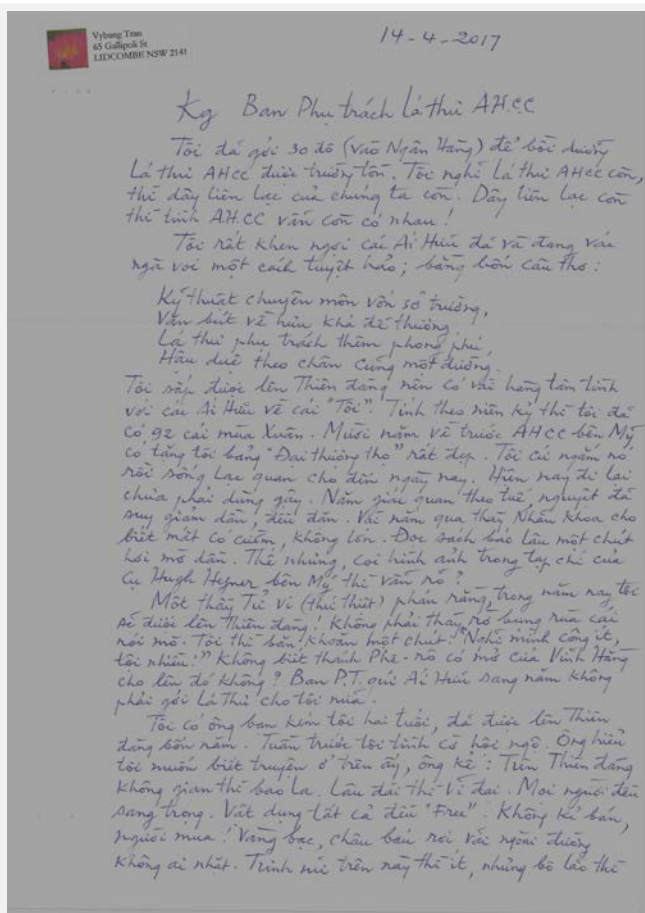 Vybang Tran
65 Gallipoli St
LIDCOMBE NSW 2141
14-4-2017
Kg Ban Phụ trách Lá thư AH.C.C
Tôi đã gởi 30 đô (vào Ngân Hàng) để bồi dưỡng
Lá thư AHCC được trường tồn. Tôi nghĩ Lá thư AHCC còn,
thì dây liên lạc của chúng ta còn. Dây liên lạc còn
thì tình AH.CC vẫn còn có nhau!
Tôi rất khen ngợi các Ái Hữu đã và đang vác
ngà voi một cách tuyệt hảo; bằng bốn câu thơ:
Kỹ thuật chuyên môn vốn sở trường,
Văn bút về hưu khá dễ thương
Lá thư phụ trách thêm phong phú,
Hậu duệ theo chân cùng một đường.
Tôi sắp được lên Thiên đàng nên có vài hàng tâm tình
với các Ái Hữu về cái "Tôi". Tính theo niên kỷ thì tôi đã
có 92 cái mùa Xuân. Mười năm về trước AHCC bên Mỹ
có tặng tôi bảng "Đại thượng thọ" rất đẹp. Tôi cứ ngắm nó
rồi sống lạc quan cho đến ngày nay. Hiện nay đi lại
chưa phải dùng gậy. Năm giác quan theo tuế nguyệt đã
suy giảm dần, đều đặn. Vài năm qua thầy Nhãn khoa cho
biết mắt có cườm, không lớn. Đọc sách báo lâu một chút
hơi mờ dần. Thế nhưng, coi hình ảnh trong tạp chí của
Cụ Hugh Hefner bên Mỹ thì vẫn rõ?
Một thầy Tử vi (thứ thiệt) phán rằng, trong năm nay tôi
sẽ được lên Thiên đàng! Không phải thầy rờ bụng rùa cái
nói mò. Tôi thì băn khoăn một chút: "Nghĩ mình công ít,
tội nhiều!" Không biết thánh Phê-rô có mở cửa Vĩnh Hằng
cho lên đó không? Ban P.T. quí Ái Hữu sang năm không
phải gởi Lá Thư cho tôi nữa.
Tôi có ông bạn kém tôi hai tuổi, đã được lên Thiên
đàng bốn năm. Tuần trước tôi tình cờ hội ngộ. Ông hiểu
tôi muốn biết truyện ở trên ấy, ông kể: Trên Thiên đàng
không gian thì bao la. Lâu đài thì vĩ đại. Mọi người đều
sang trọng. Vật dụng tất cả đều "Free". Không kẻ bán,
người mua! Vàng bạc, châu báu rơi vãi ngoài đường
không ai nhặt. Trinh nữ trên này thì ít, nhưng bô lão thì